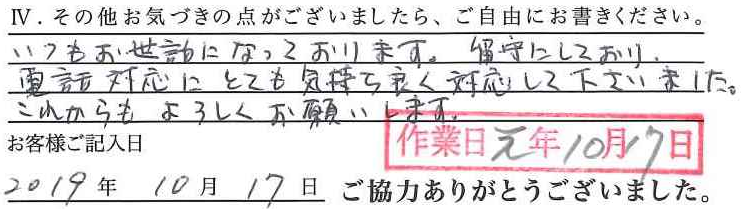 Ⅳ．その他お気づきの点がございましたら、ご自由にお書きください。
いつもお世話になっております。留守にしており、
電話対応にとても気持ち良く対応して下さいました。
これからもよろしくお願いします。
お客様ご記入日
作業日元年10月17日
2019年 10月 17日 ご協力ありがとうございました。